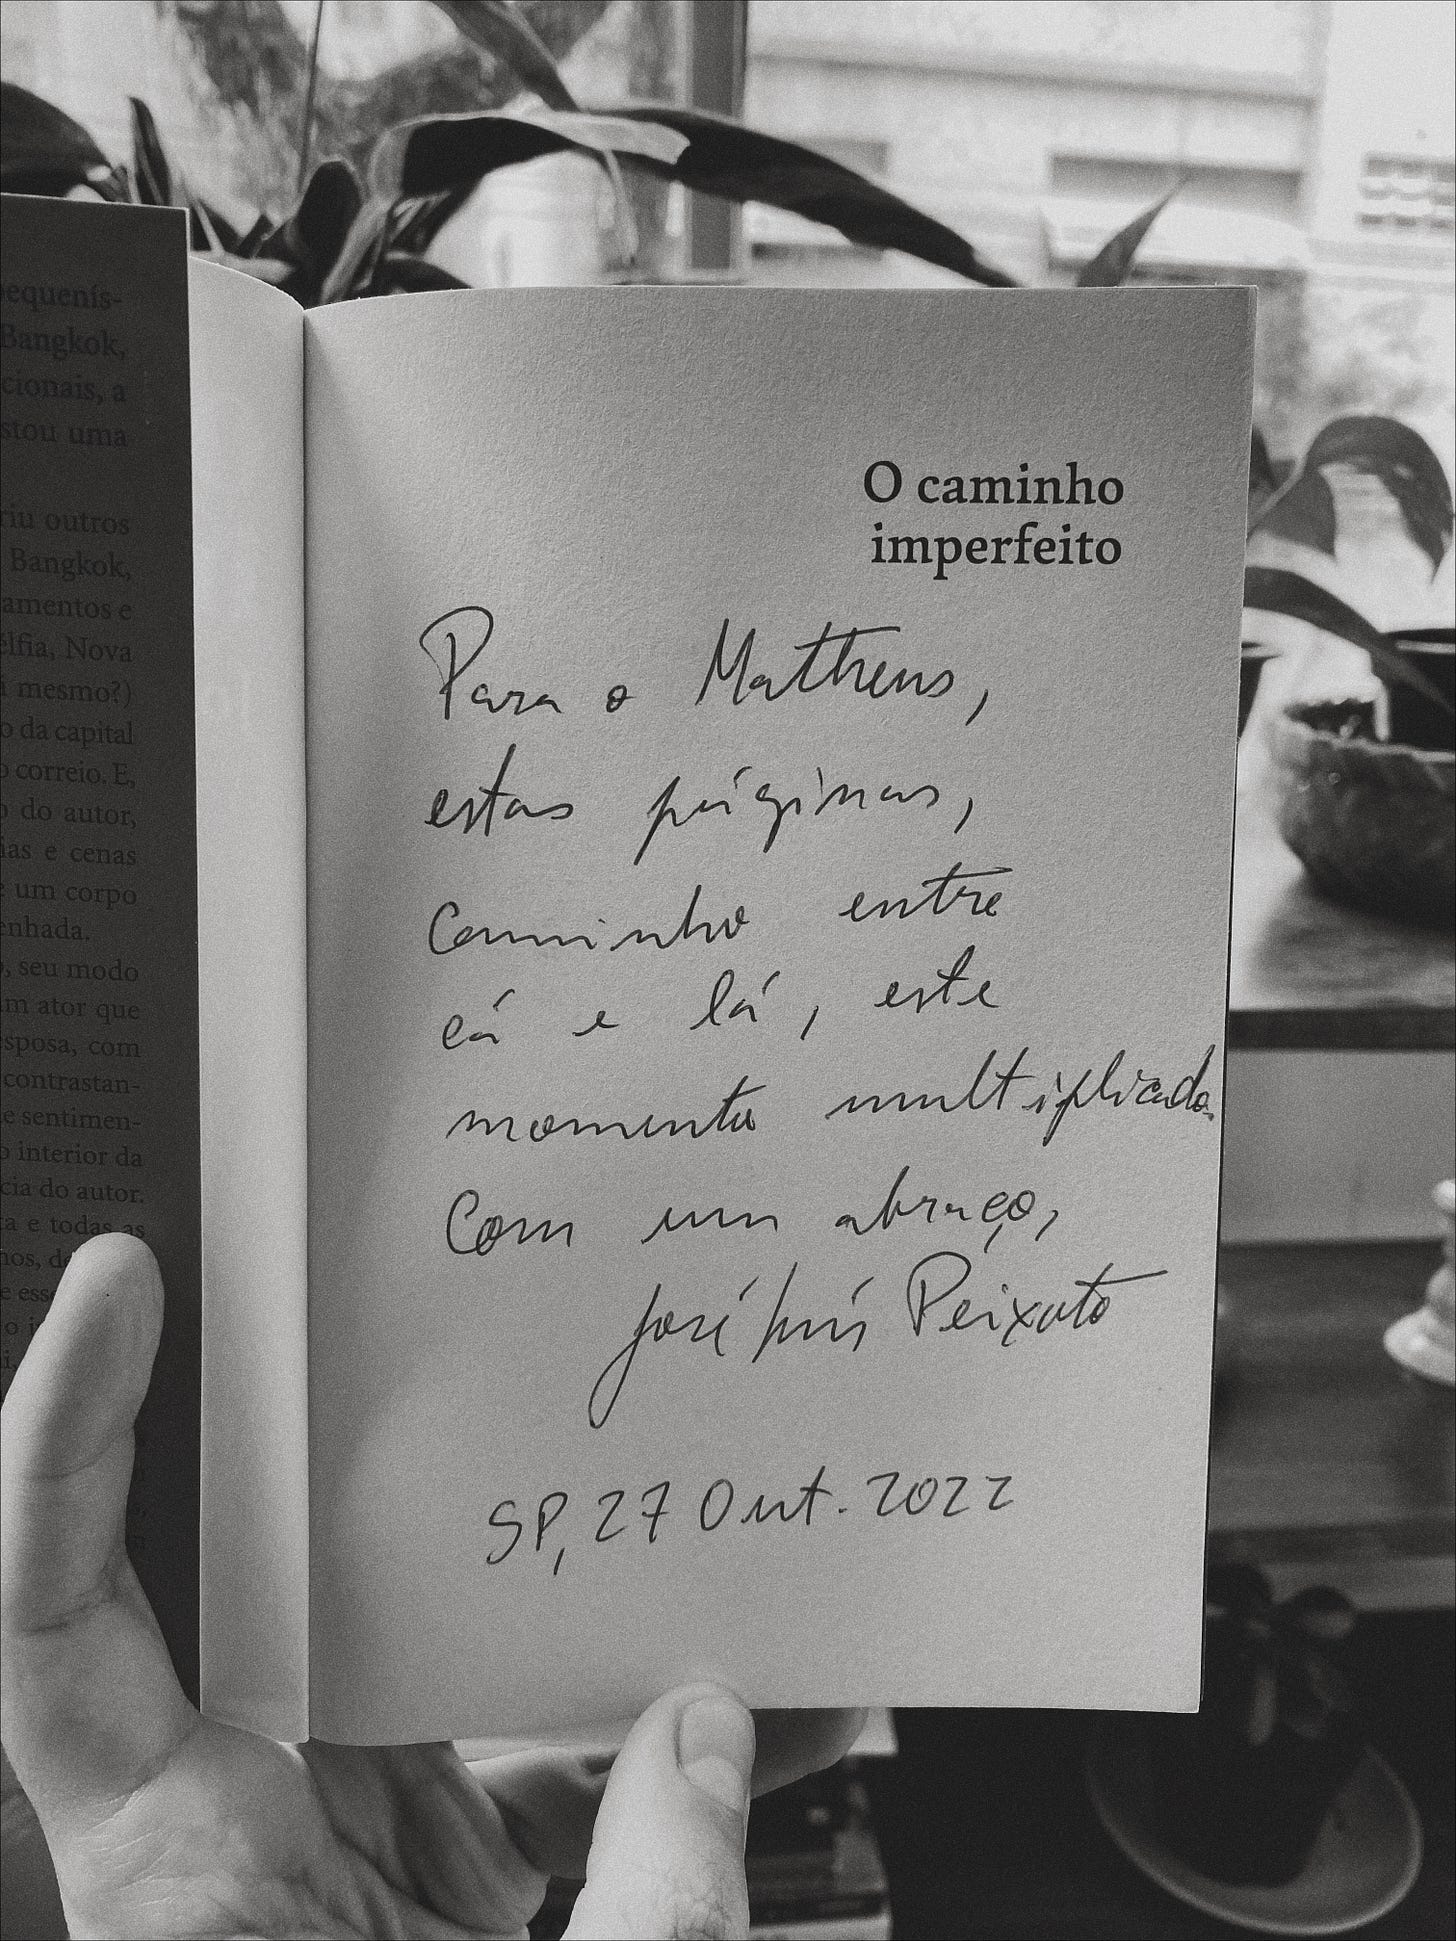 pequenís-
Bangkok,
cionais, a
stou uma
riu outros
Bangkok,
amentos e
élfia, Nova
mesmo?)
o da capital
o correio. E,
o do autor,
nas e cenas
e um corpo
enhada.
o, seu modo
m ator que
esposa, com
contrastan-
e sentimen-
o interior da
cia do autor.
ta e todas as
O caminho
imperfeito
Para o Matheus,
estas páginas,
caminho entre
cá e lá, este
momento multiplicado.
Com um abraço,
José Luís Peixoto
SP, 27 Out. 2022